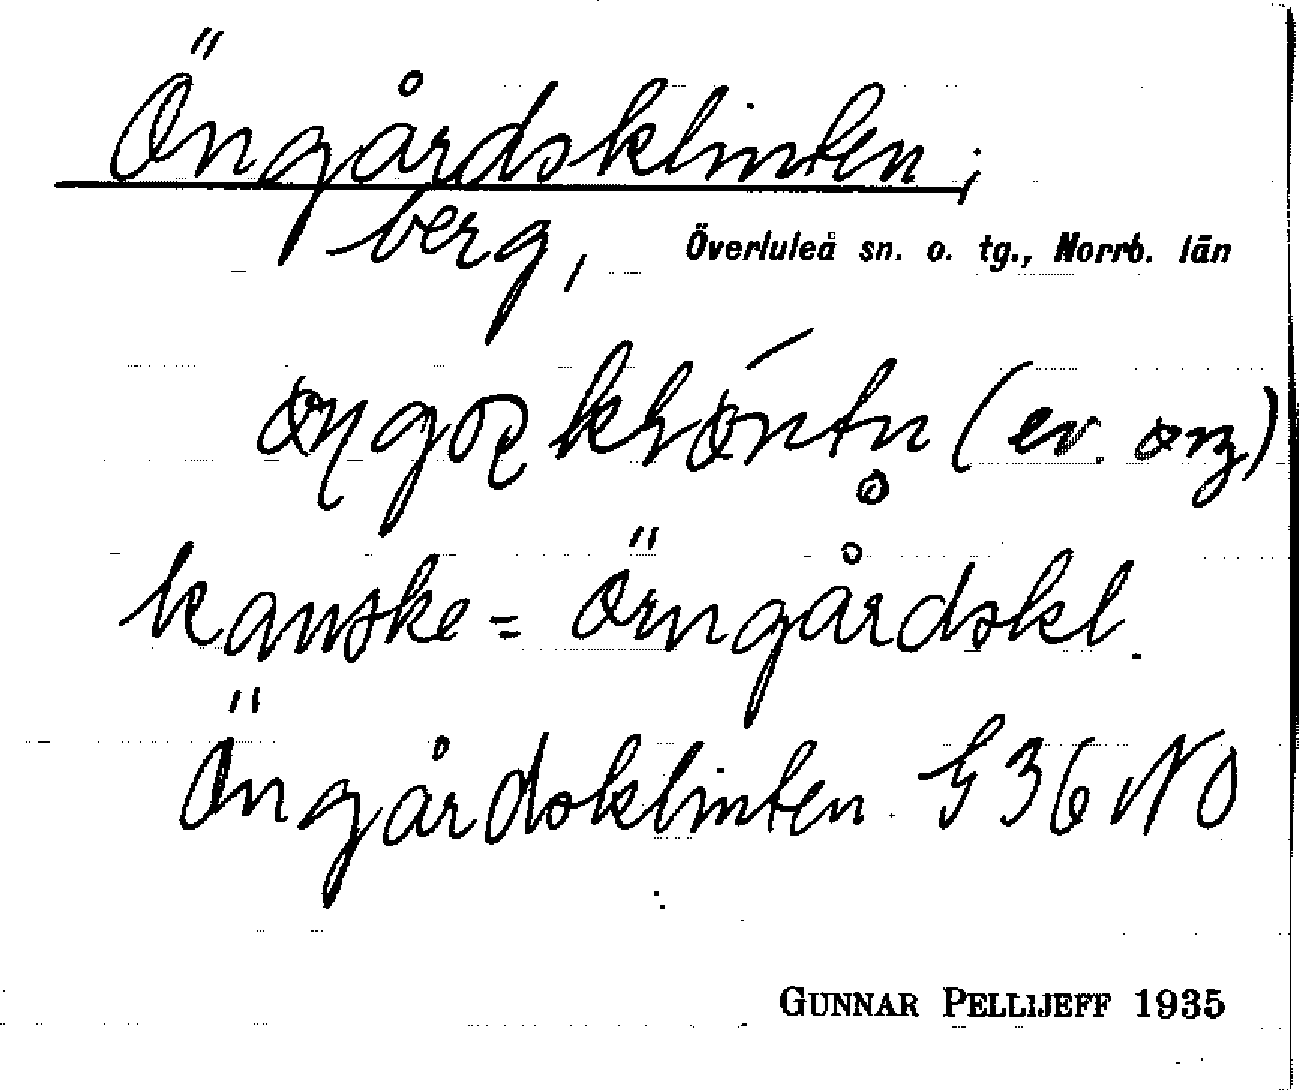 Öngårdsklinten;
berg, Överluleå sn. o. tg., Norrb. län
(ev.
kanske = Örngårdskl.
Öngårdsklinten G 36 NO
GUNNAR PELLIJEFF 1935